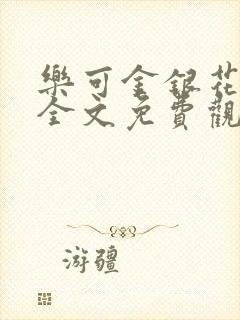 樂可金銀花
全文免費觀
游疆